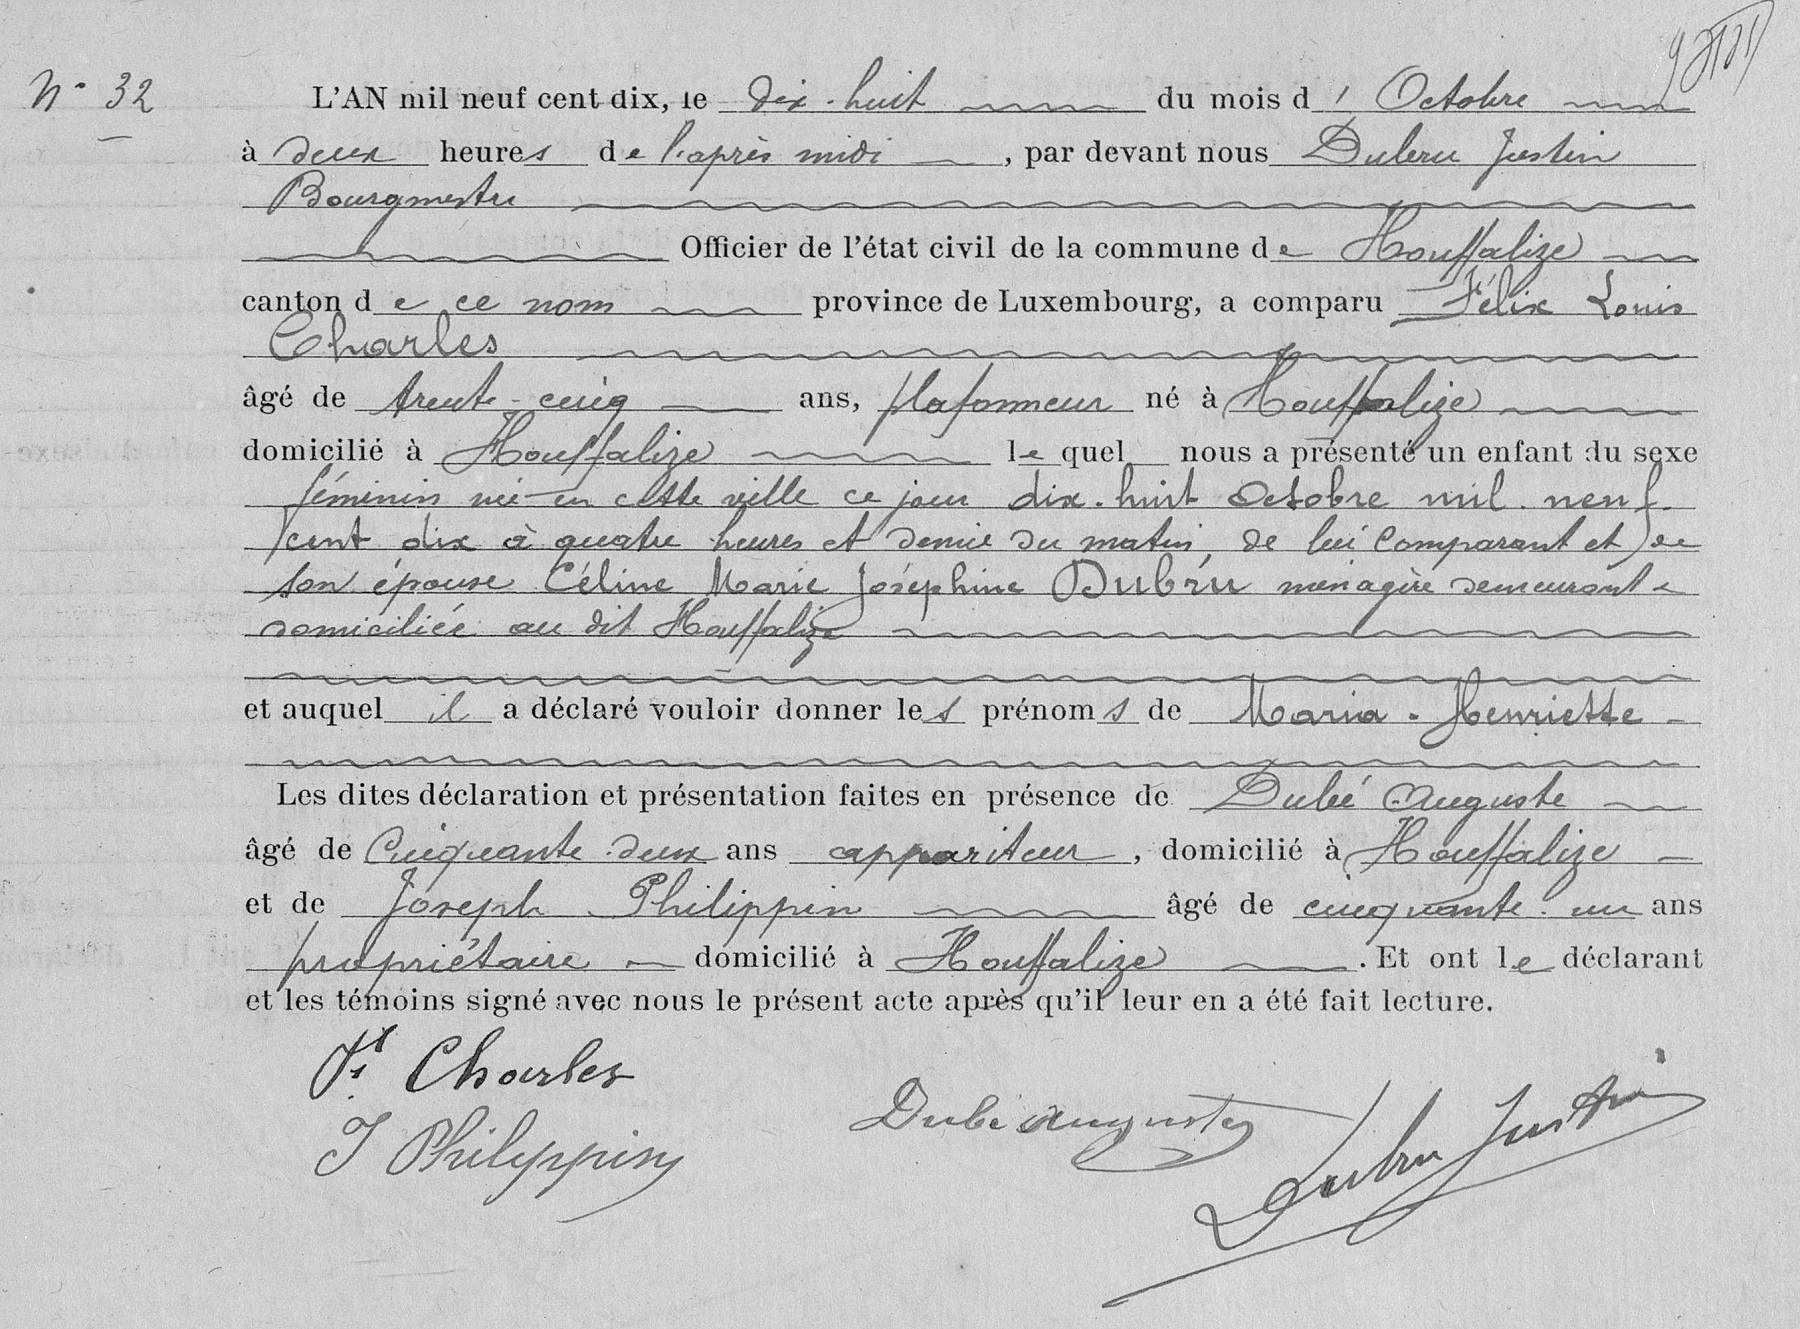 N° 32
L'AN mil neuf cent dix, le dix-huit du mois d'Octobre
à deux heures de l'après midi, par devant nous Dubru Justin
Bourgmestre
Officier de l'état civil de la commune de Houffalize
canton de ce nom province de Luxembourg, a comparu Félix Louis
Charles
âgé de trente-cinq ans, plafonneur né à Houffalize
domicilié à Houffalize le quel nous a présenté un enfant du sexe
féminin née en cette ville ce jour dix-huit Octobre mil-neuf-
cent dix à quatre heures et demie du matin, de lui Comparant et de
son épouse Céline Marie Joséphine Dubru ménagère demeurant &
domiciliée au dit Houffalize
et auquel il a déclaré vouloir donner les prénoms de Maria-Henriette
Les dites déclaration et présentation faites en présence de Dubé Auguste
âgé de Cinquante-deux ans appariteur, domicilié à Houffalize
et de Joseph Philippin âgé de cinquante-un ans
propriétaire domicilié à Houffalize. Et ont le déclarant
et les témoins signé avec nous le présent acte après qu'il leur en a été fait lecture.
Charles
J Philippin
Dubé Auguste
Dubru Justin